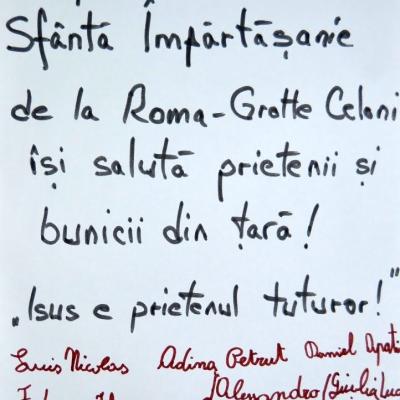 Sfântă Împărtășanie
de la Roma-Grotte Celoni
își salută prietenii și
bunicii din țară!
„Isus e prietenul tuturor!”
Luis Nicolas Adina Petrut Daniel
Alessandro Giulia